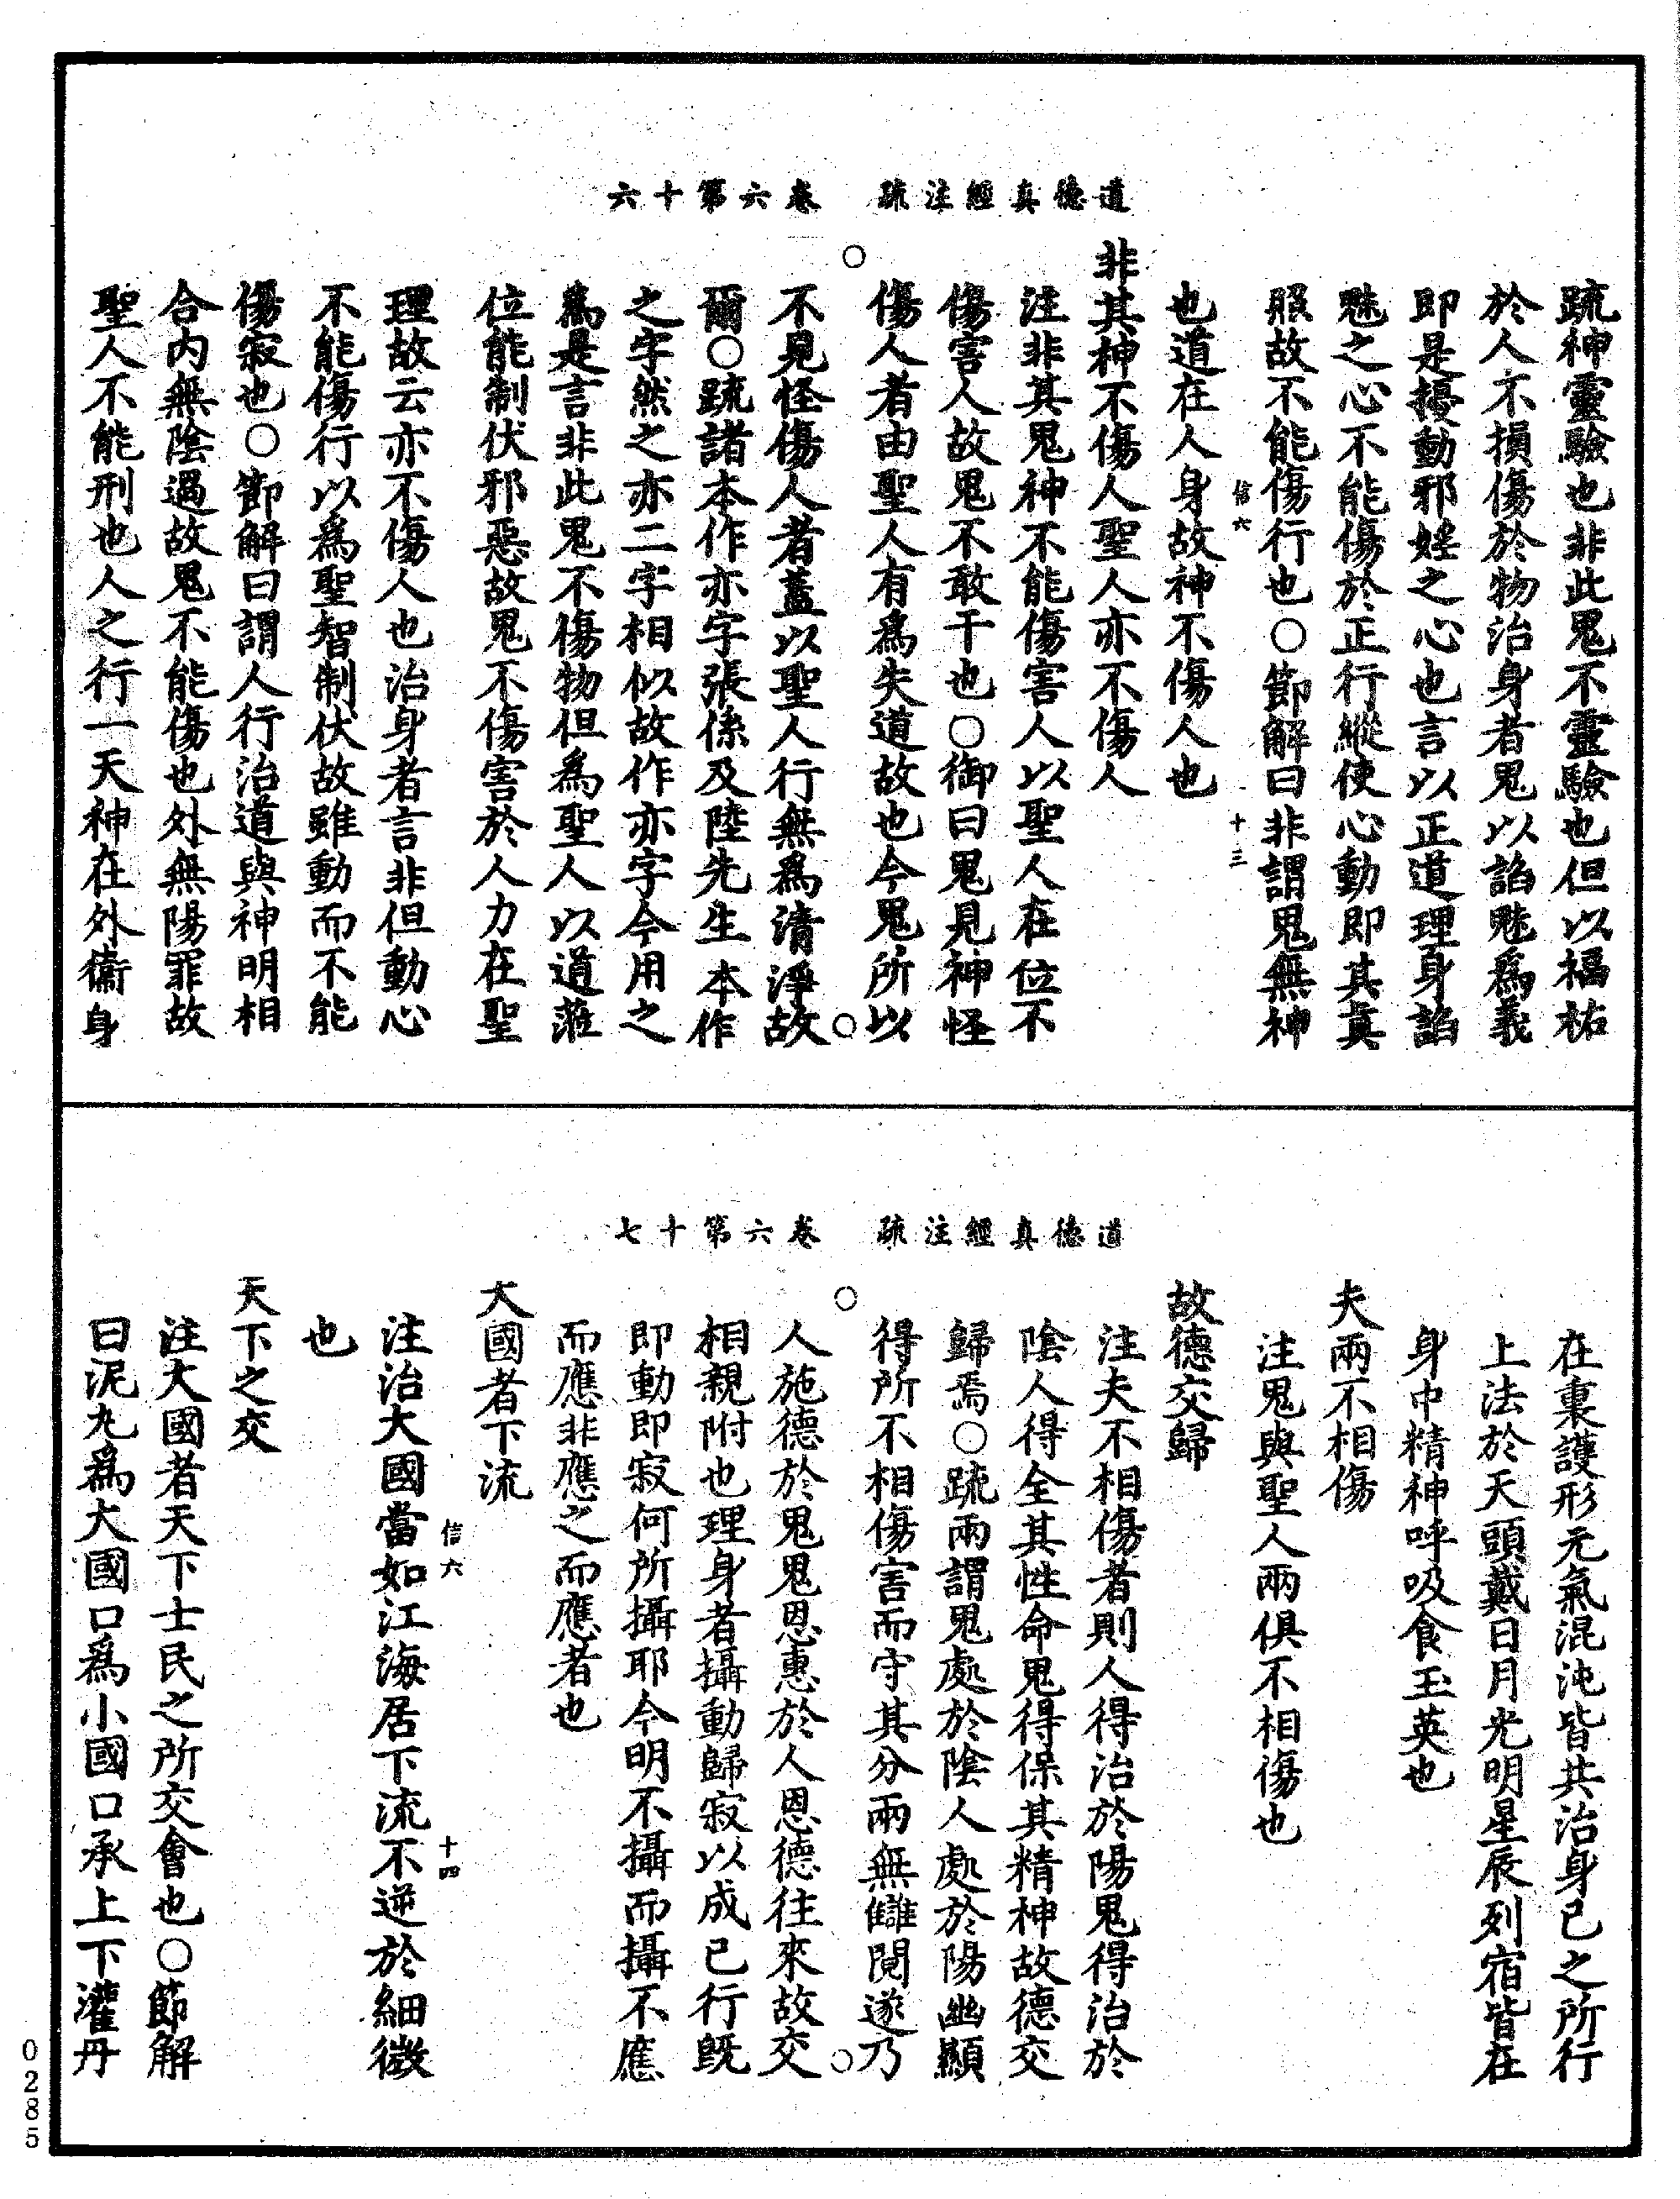 道德真經注疏　卷六第十六
疏神靈驗也非此鬼不靈驗也但以福祐
於人不損傷於物治身者鬼以諂魅爲義
即是擾動邪婬之心也言以正道理身諂
魅之心不能傷於正行縱使心動即其真
服故不能傷行也○節解曰非謂鬼無神
信六　十三
也道在人身故神不傷人也
非其神不傷人聖人亦不傷人
注非其鬼神不能傷害人以聖人在位不
傷害人故鬼不敢干也○御曰鬼見神怪
傷人者由聖人有爲失道故也今鬼所以
不見怪傷人者蓋以聖人行無爲清淨故
爾○疏諸本作亦字張係及陸先生本作
之字然之亦二字相似故作亦字今用之
爲是言非此鬼不傷物但爲聖人以道蒞
位能制伏邪惡故鬼不傷害於人力在聖
理故云亦不傷人也治身者言非但動心
不能傷行以爲聖智制伏故雖動而不能
傷寂也○節解曰謂人行治道與神明相
合内無陰過故鬼不能傷也外無陽罪故
聖人不能刑也人之行一天神在外衞身
道德真經注疏　卷六第十七
在裏護形元氣混沌皆共治身已之所行
上法於天頭戴日月光明星辰列宿皆在
身中精神呼吸食玉英也
夫兩不相傷
注鬼與聖人兩俱不相傷也
故德交歸
注夫不相傷者則人得治於陽鬼得治於
陰人得全其性命鬼得保其精神故德交
歸焉○疏兩謂鬼處於陰人處於陽幽顯
得所不相傷害而守其分兩無讎閱遂乃
人施德於鬼鬼恩惠於人恩德往來故交
相親附也理身者攝動歸寂以成已行既
即動即寂何所攝耶今明不攝而攝不應
而應非應之而應者也
大國者下流
信六　十四
注治大國當如江海居下流不逆於細微
也
天下之交
注大國者天下士民之所交會也○節解
曰泥丸爲大國口爲小國口承上下灌丹
0285